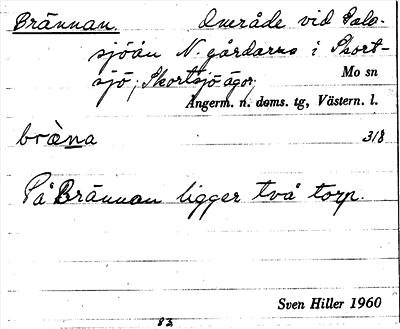 Brännan. Område vid Salo-
sjöån N. gårdarna i Skort-
sjö, Skortsjö ägor, Mo sn
Ångerm. n. doms. tg, Västern. l.
bràna 318
På Brännan ligger två torp.
Sven Hiller 1960
82